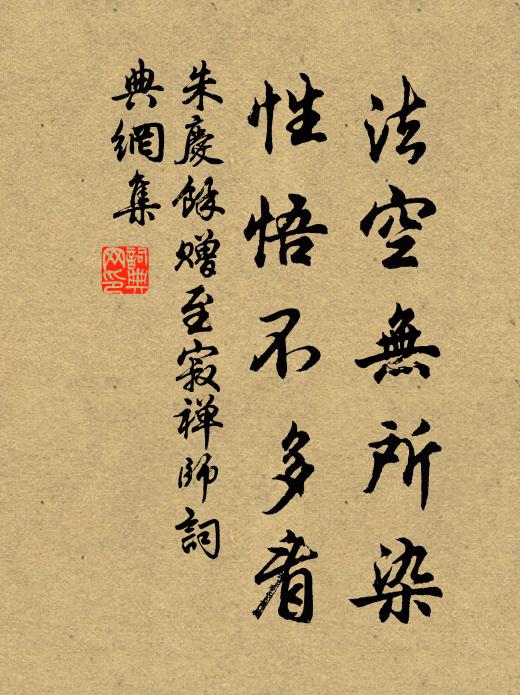 法空無所染
性悟不多看
朱慶餘贈至寂禅師詞
典網集
詞典
网印